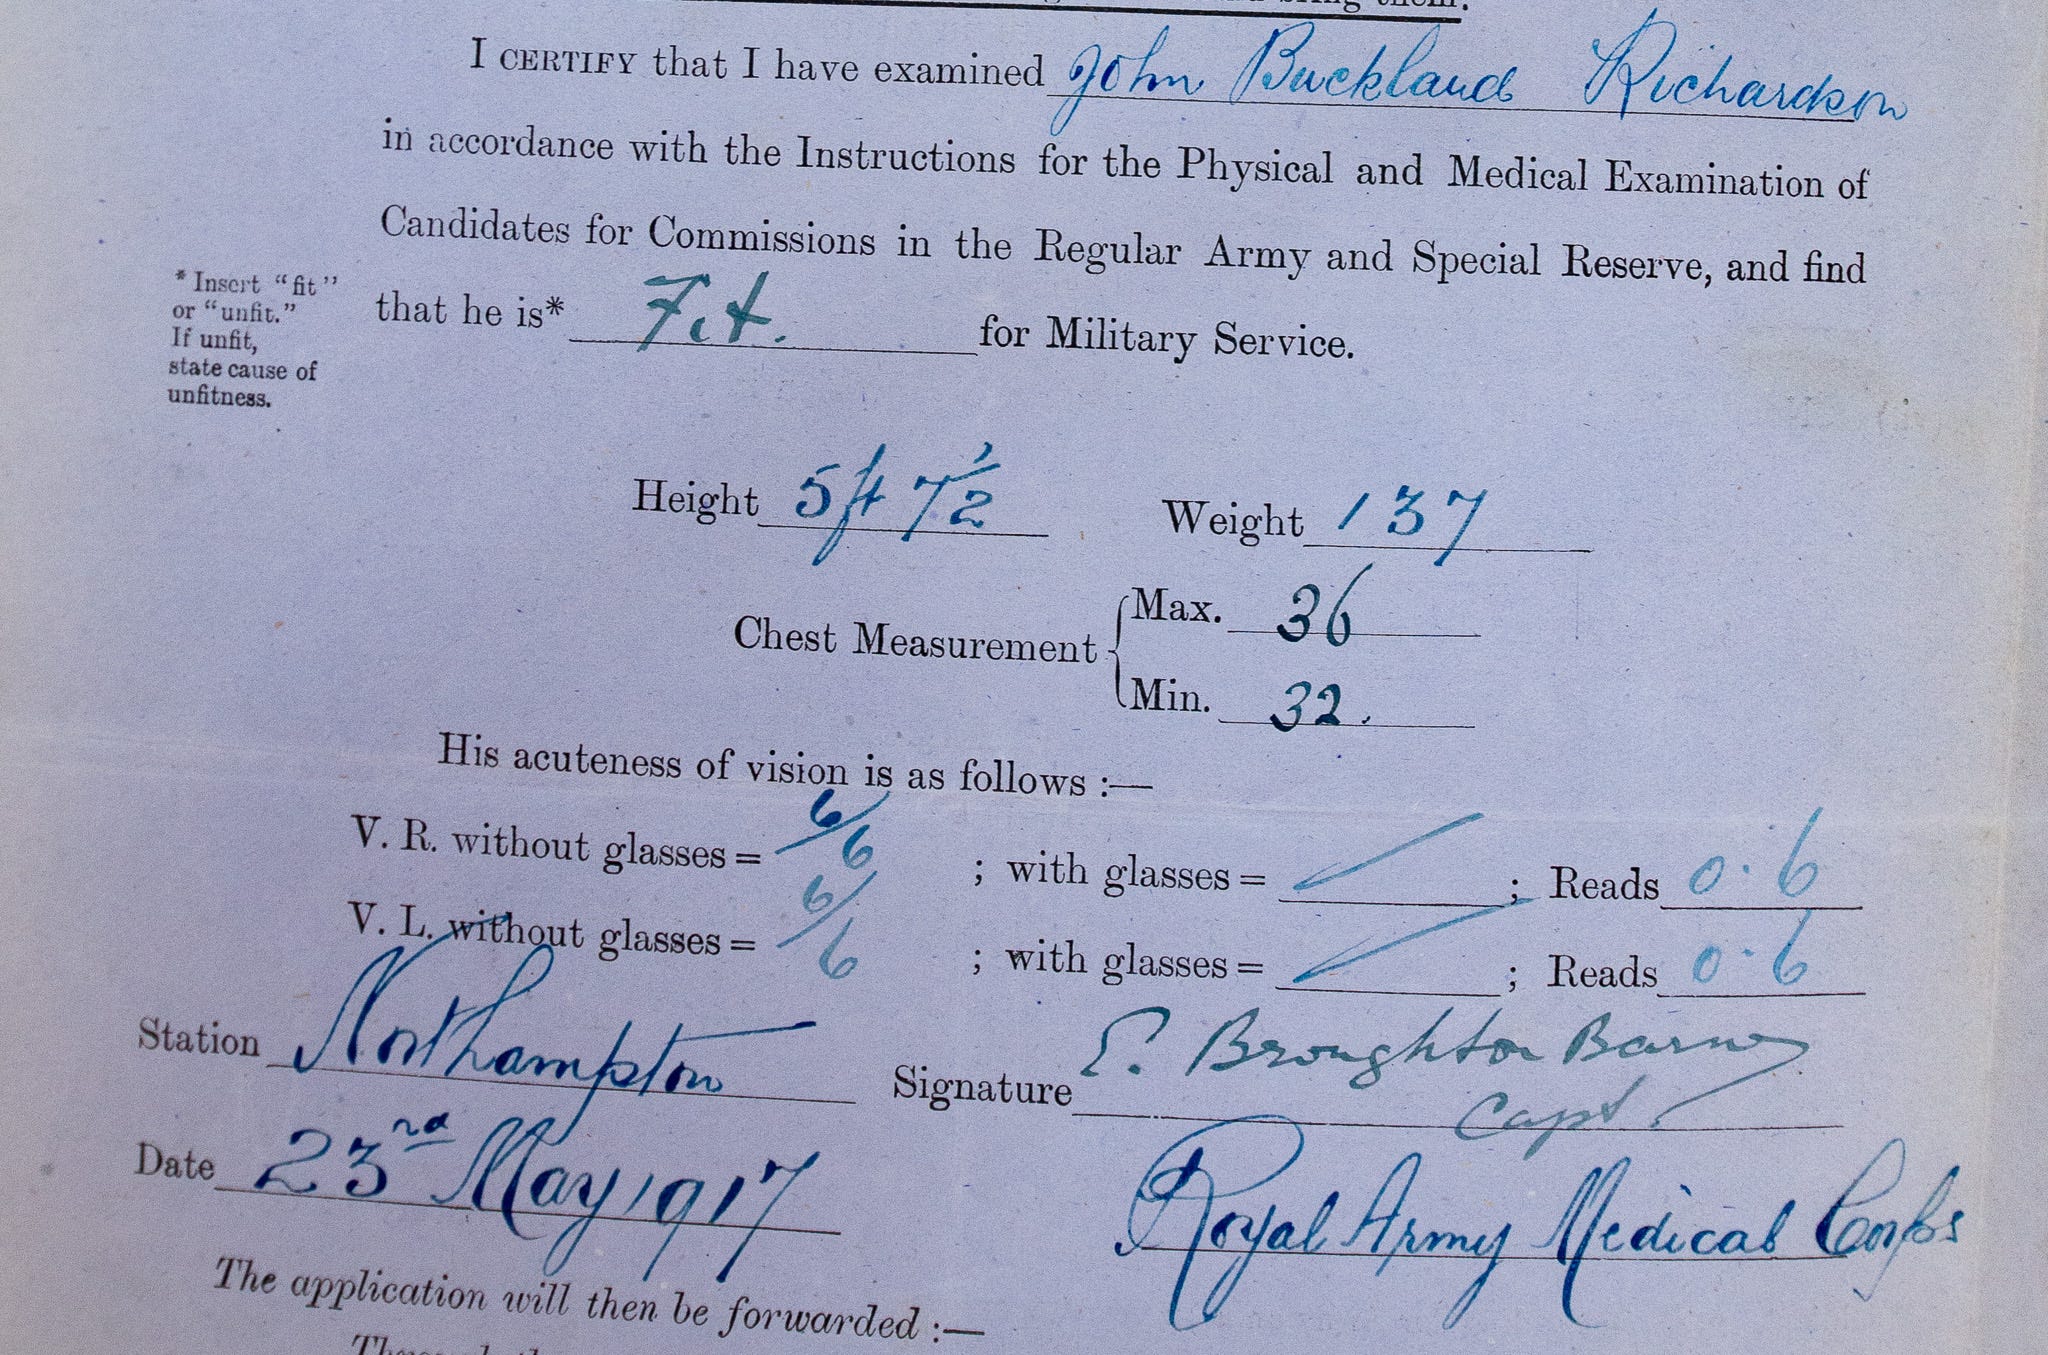 bring them.
I CERTIFY that I have examined John Buckland Richardson
in accordance with the Instructions for the Physical and Medical Examination of
Candidates for Commissions in the Regular Army and Special Reserve, and find
that he is* Fit. for Military Service.
* Insert "fit"
or "unfit."
If unfit,
state cause of
unfitness.
Height 5ft 7 1/2 Weight 137
Chest Measurement { Max. 36
Min. 32.
His acuteness of vision is as follows :—
V. R. without glasses = 6/6 ; with glasses = / ; Reads 0.6
V. L. without glasses = 6/6 ; with glasses = / ; Reads 0.6
Station Northampton Signature E. Broughton Barnes
Capt.
Date 23rd May 1917 Royal Army Medical Corps
The application will then be forwarded :—